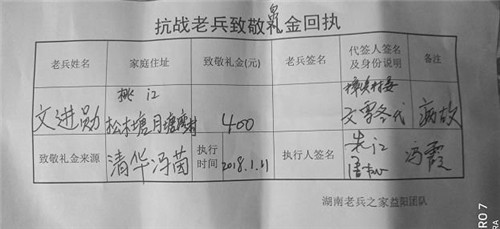 抗战老兵致敬礼金回执
老兵姓名 家庭住址 致敬礼金(元) 老兵签名 代签人签名及身份说明 备注
文进勋 桃江松木塘月塘湾村 400 文雪冬代 病故
致敬礼金来源 清华冯茵 执行时间 2018.1.11 执行人签名 冯霞
湖南老兵之家益阳团队